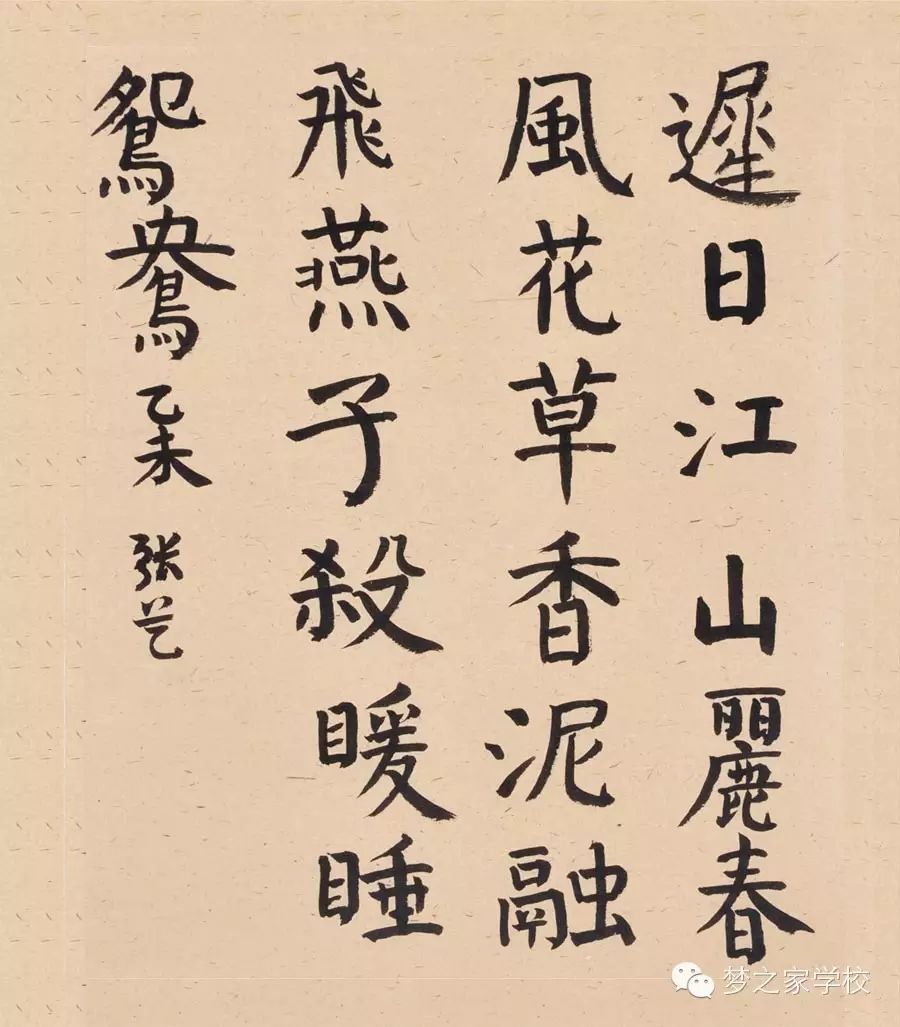 遲日江山麗春
風花草香泥融
飛燕子殺暖睡
鴛鴦 乙未 张艺
梦之家学校